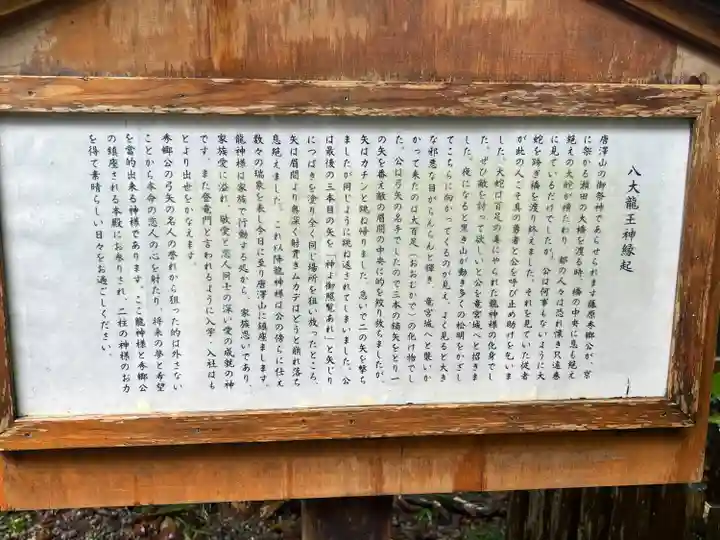 八大龍王神縁起
唐澤山の御祭神であらせられます藤原秀郷公が、京
に架かる瀬田の大橋を渡る時、橋の中央に息も絶え
絶えの大蛇が横たわり 都の人々は恐れ慄き只遠巻
に見ているだけでしたが、公は何事もないように大
蛇を跨ぎ橋を渡り終えました。それを見ていた従者
が此の人こそ真の勇者と公を呼び止め助けを乞いま
した。大蛇は百足の毒にやられた龍神様の化身でし
た。ぜひ敵を討って欲しいと公を竜宮城へと招きま
した。夜になると黒き山が動き多くの松明をかざし
てこちらに向かってくるのが見え、よく見ると大き
な邪悪な目がらんらんと輝き、竜宮城へと襲いか
かって来たのは大百足(おおむかで)の化け物でし
た。公は弓矢の名手でしたので三本の鏑矢をとり一
の矢を番え敵の眉間の中央に的を絞り放ちましたが、
矢はカチンと跳ね帰りました。急いで二の矢を撃ち
ましたが同じように跳ね返されてしまいました。公
は最後の三本目の矢を「神よ御照覧あれ」と矢じり
につばきを塗り全く同じ場所を狙い放ったところ、
矢は眉間より奥深く射貫きムカデはどうと崩れ落ち
息絶えました。これ以降龍神様は公の傍らに仕え
数々の瑞象を表し今日に至り唐澤山に鎮座します。
龍神様は家族で行動する処から、家族思いであり、
家族愛に溢れ、敬愛と恋人同士の深い愛の成就の神
です。また登竜門と言われるように入学、入社はも
とより出世をかなえます。
秀郷公の弓矢の名人の誉れから狙った的は外さない
ことから本命の恋人の心を射たり、将来の夢と希望
を当的出来る神様であります。ここ龍神様と秀郷公
の鎮座される本殿にお参りされ、二柱の神様のお力
を得て素晴らしい日々をお過ごしください。